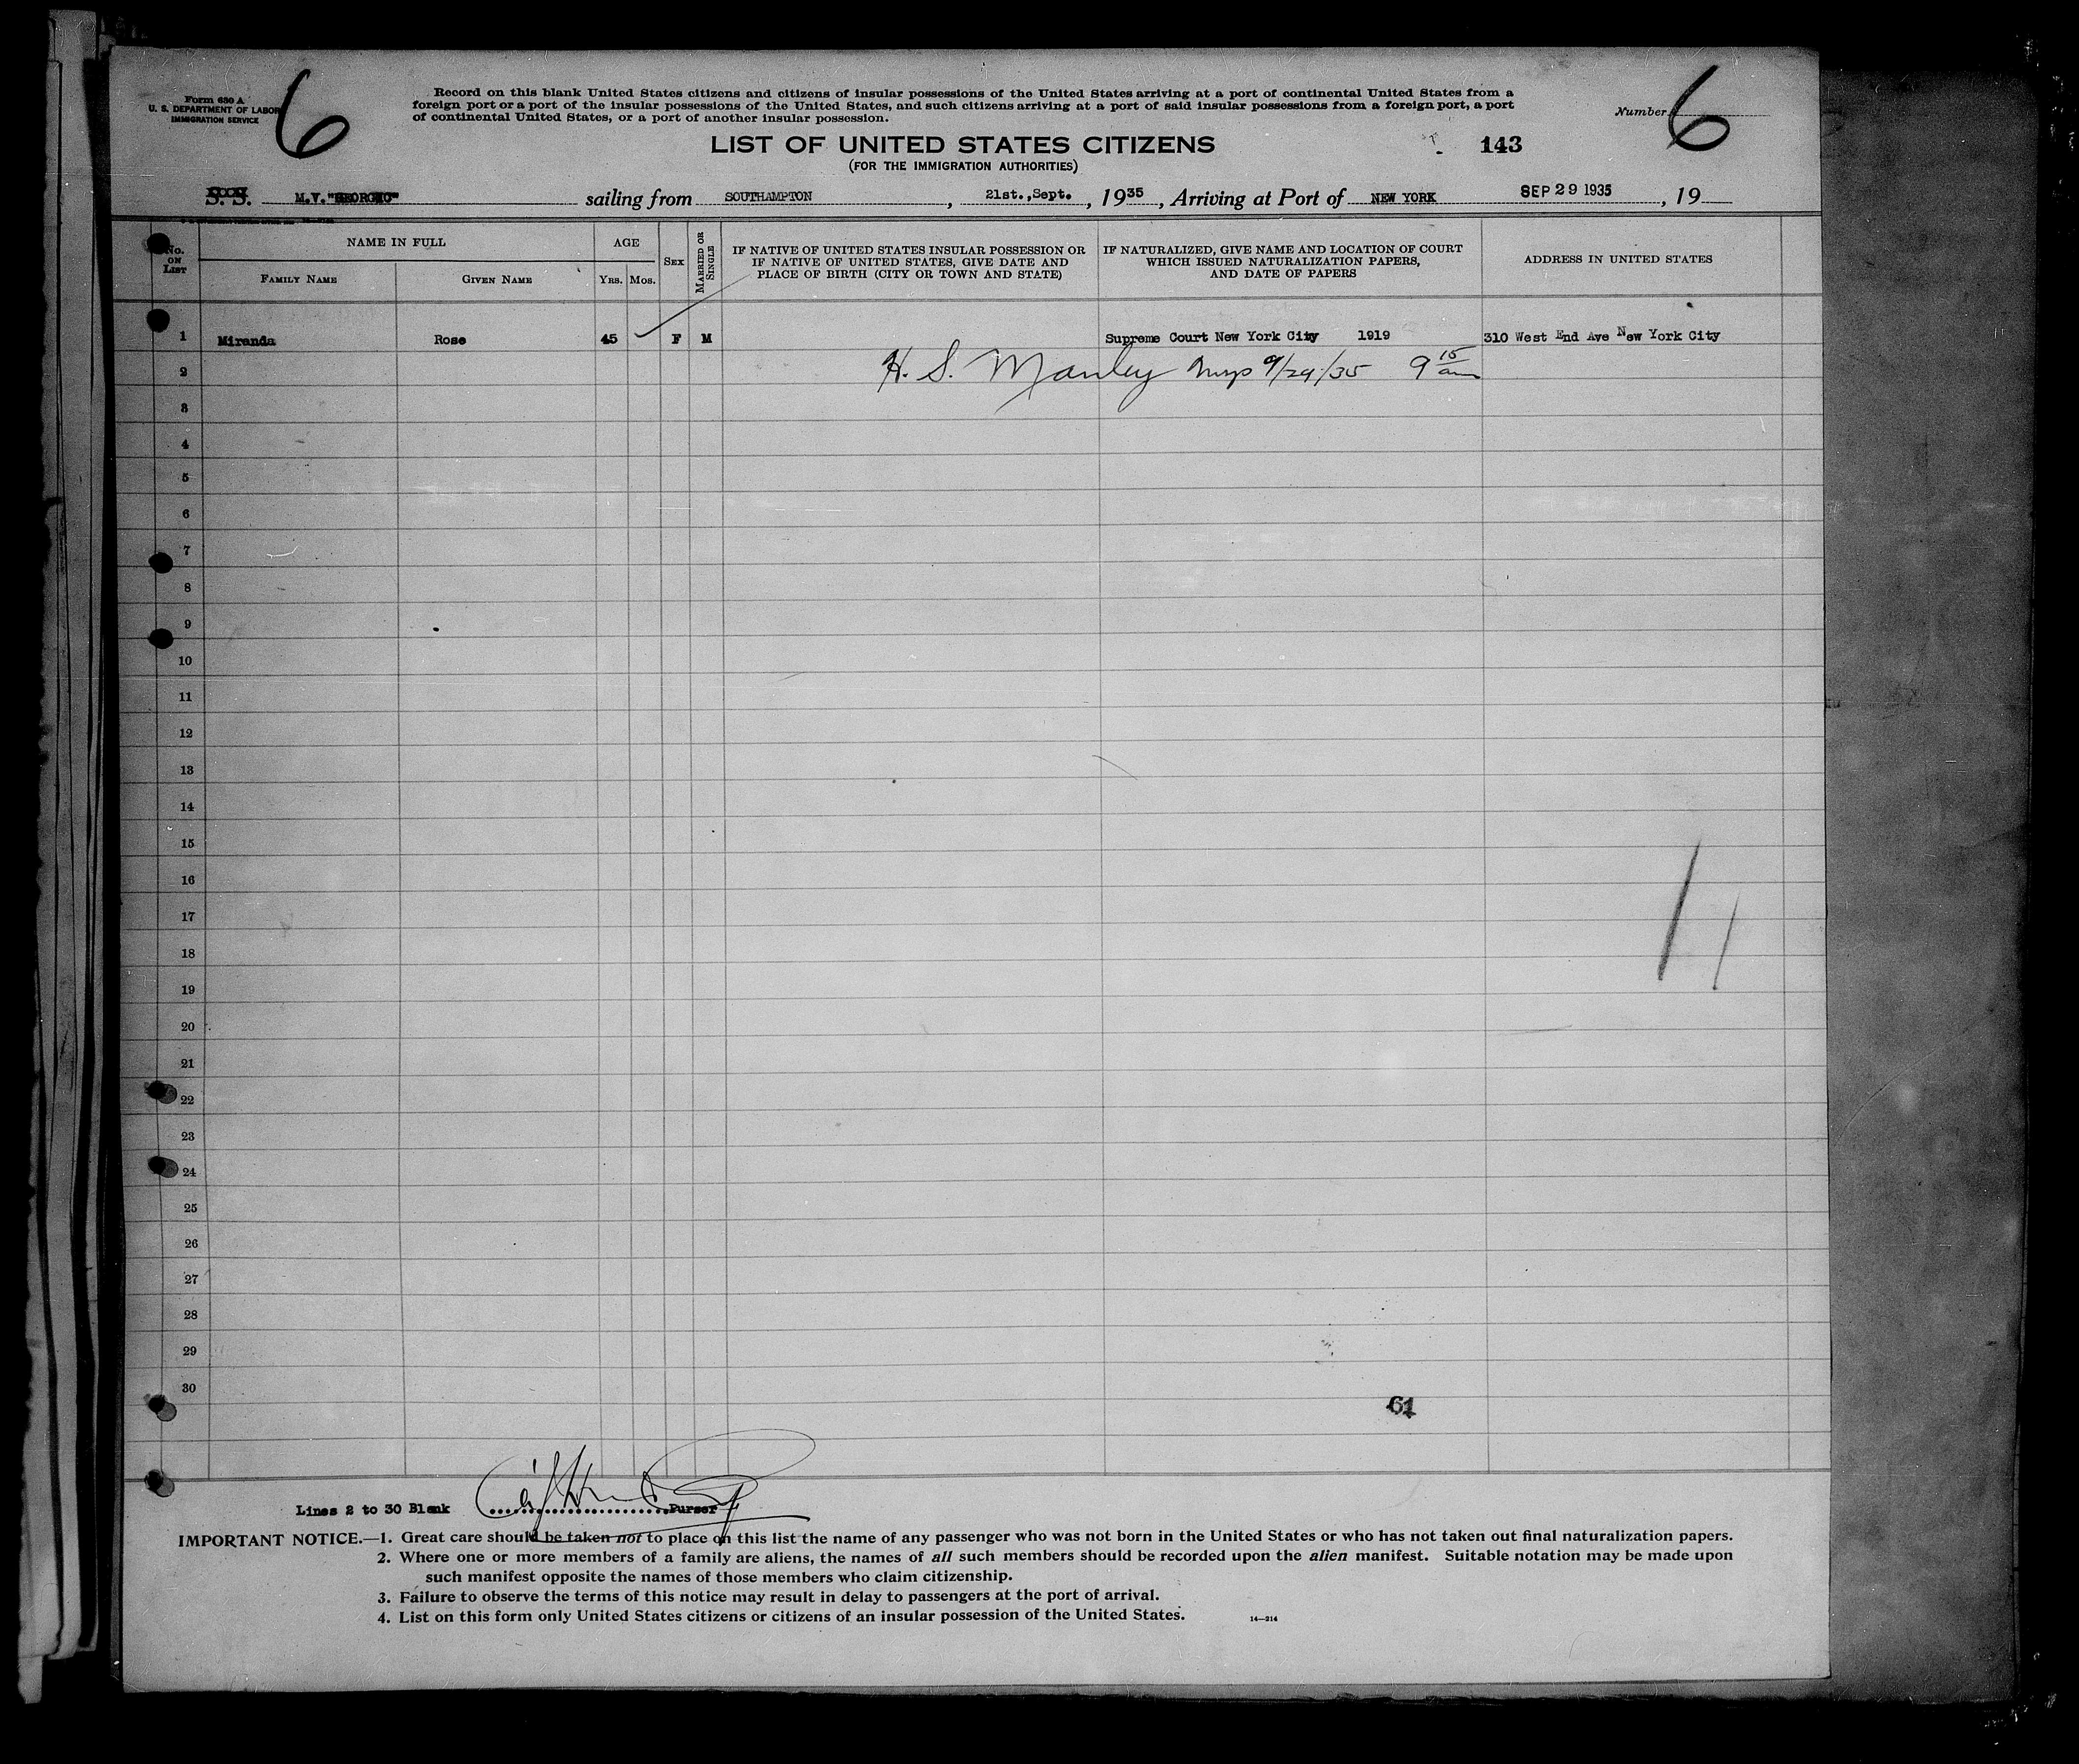 Form 630 A
U. S. DEPARTMENT OF LABOR
IMMIGRATION SERVICE
6
Record on this blank United States citizens and citizens of insular possessions of the United States arriving at a port of continental United States from a
foreign port or a port of the insular possessions of the United States, and such citizens arriving at a port of said insular possessions from a foreign port, a port
of continental United States, or a port of another insular possession.
Number 6
LIST OF UNITED STATES CITIZENS
143
(FOR THE IMMIGRATION AUTHORITIES)
S. S. M.V. sailing from SOUTHAMPTON , 21st.,Sept. , 1935 , Arriving at Port of NEW YORK SEP 29 1935 , 19
No. ON LIST
NAME IN FULL
FAMILY NAME GIVEN NAME
AGE
YRS. MOS.
SEX
MARRIED OR SINGLE
IF NATIVE OF UNITED STATES INSULAR POSSESSION OR
IF NATIVE OF UNITED STATES, GIVE DATE AND
PLACE OF BIRTH (CITY OR TOWN AND STATE)
IF NATURALIZED, GIVE NAME AND LOCATION OF COURT
WHICH ISSUED NATURALIZATION PAPERS,
AND DATE OF PAPERS
ADDRESS IN UNITED STATES
1 Miranda Rose 45 F M Supreme Court New York City 1919 310 West End Ave New York City
2 H. S. Manley 9/29/35 9 15 am
3
4
5
6
7
8
9
10
11
12
13
14
15
16
17
18
19
20
21
22
23
24
25
26
27
28
29
30
61
Lines 2 to 30 Blank Purser
IMPORTANT NOTICE.—1. Great care should be taken not to place on this list the name of any passenger who was not born in the United States or who has not taken out final naturalization papers.
2. Where one or more members of a family are aliens, the names of all such members should be recorded upon the alien manifest. Suitable notation may be made upon
such manifest opposite the names of those members who claim citizenship.
3. Failure to observe the terms of this notice may result in delay to passengers at the port of arrival.
4. List on this form only United States citizens or citizens of an insular possession of the United States.
14—214